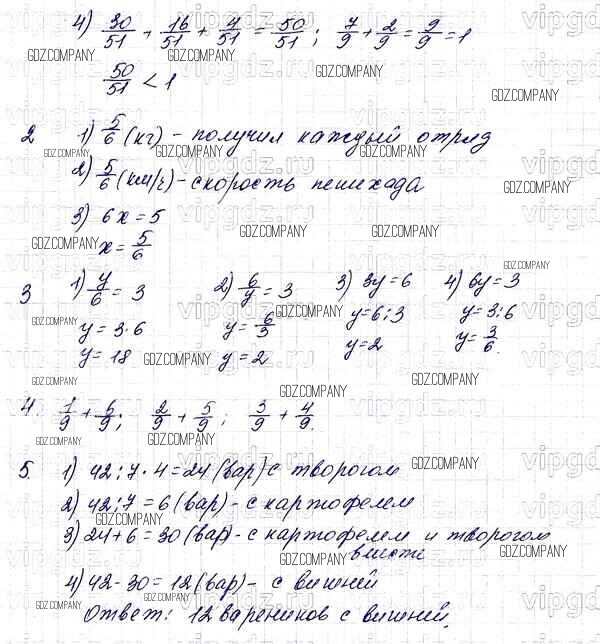 4) 30/51 + 16/51 + 4/51 = 50/51; 7/9 + 2/9 = 9/9 = 1
50/51 < 1
2 1) 5/6 (кг) - получил каждый отряд
2) 5/6 (км/ч) - скорость пешехода
3) 6x = 5
x = 5/6
3 1) y/6 = 3 2) 6/y = 3 3) 3y = 6 4) 6y = 3
y = 3·6 y = 6/3 y = 6:3 y = 3:6
y = 18 y = 2 y = 2 y = 3/6.
4. 1/9 + 6/9; 2/9 + 5/9; 3/9 + 4/9.
5. 1) 42:7·4 = 24 (вар) с творогом
2) 42:7 = 6 (вар) - с картофелем
3) 24+6 = 30 (вар) - с картофелем и творогом
вместе
4) 42-30 = 12 (вар) - с вишней
Ответ: 12 вареников с вишней.
GDZ.COMPANY
vipgdz.ru